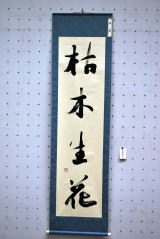 枯木生花